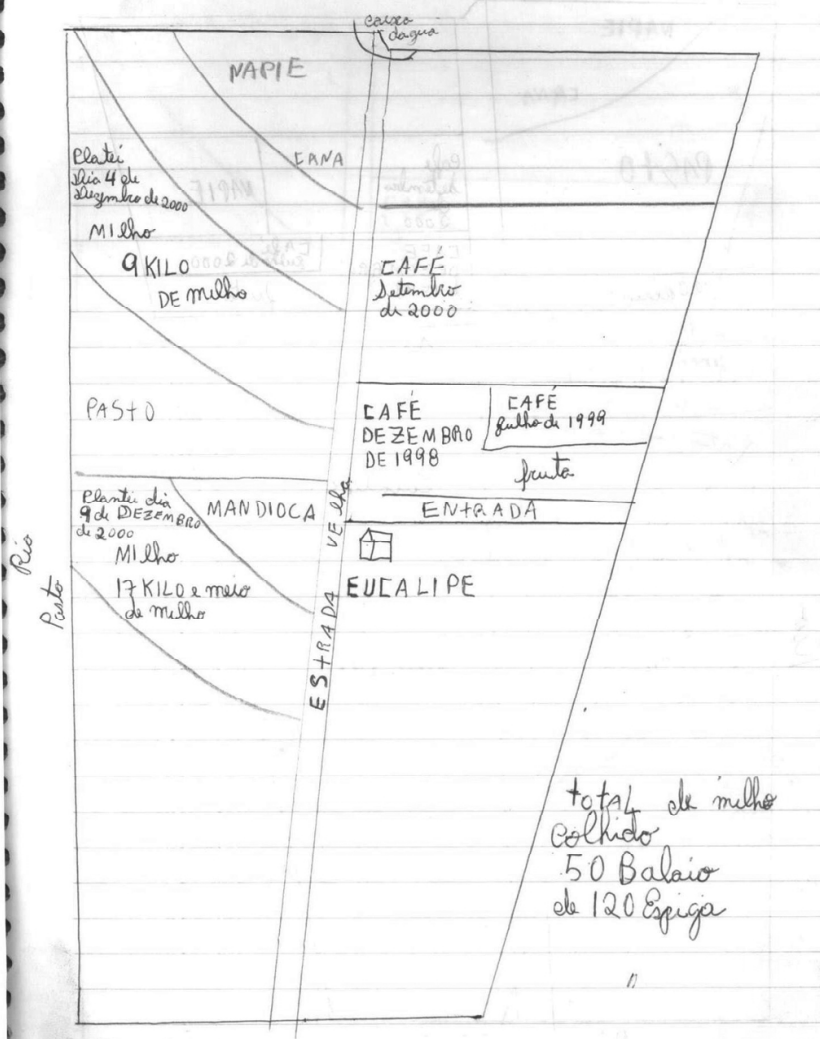 caixa
dagua
NAPIE
CANA
Plantei
Dia 4 de
Dezembro de 2000
MIlho
9 KILO
DE milho
CAFÉ
Setembro
de 2000
PASTO
CAFÉ
DEZEMBRO
DE 1998
CAFÉ
Julho de 1999
fruta
ENTRADA
Plantei dia
9 de DEZEMBRO
de 2000
MIlho
17 KILO e meio
de milho
MANDIOCA
ESTRADA VElha
EUCALIPE
Rio
Pasto
total de milho
Colhido
50 Balaio
de 120 Espiga